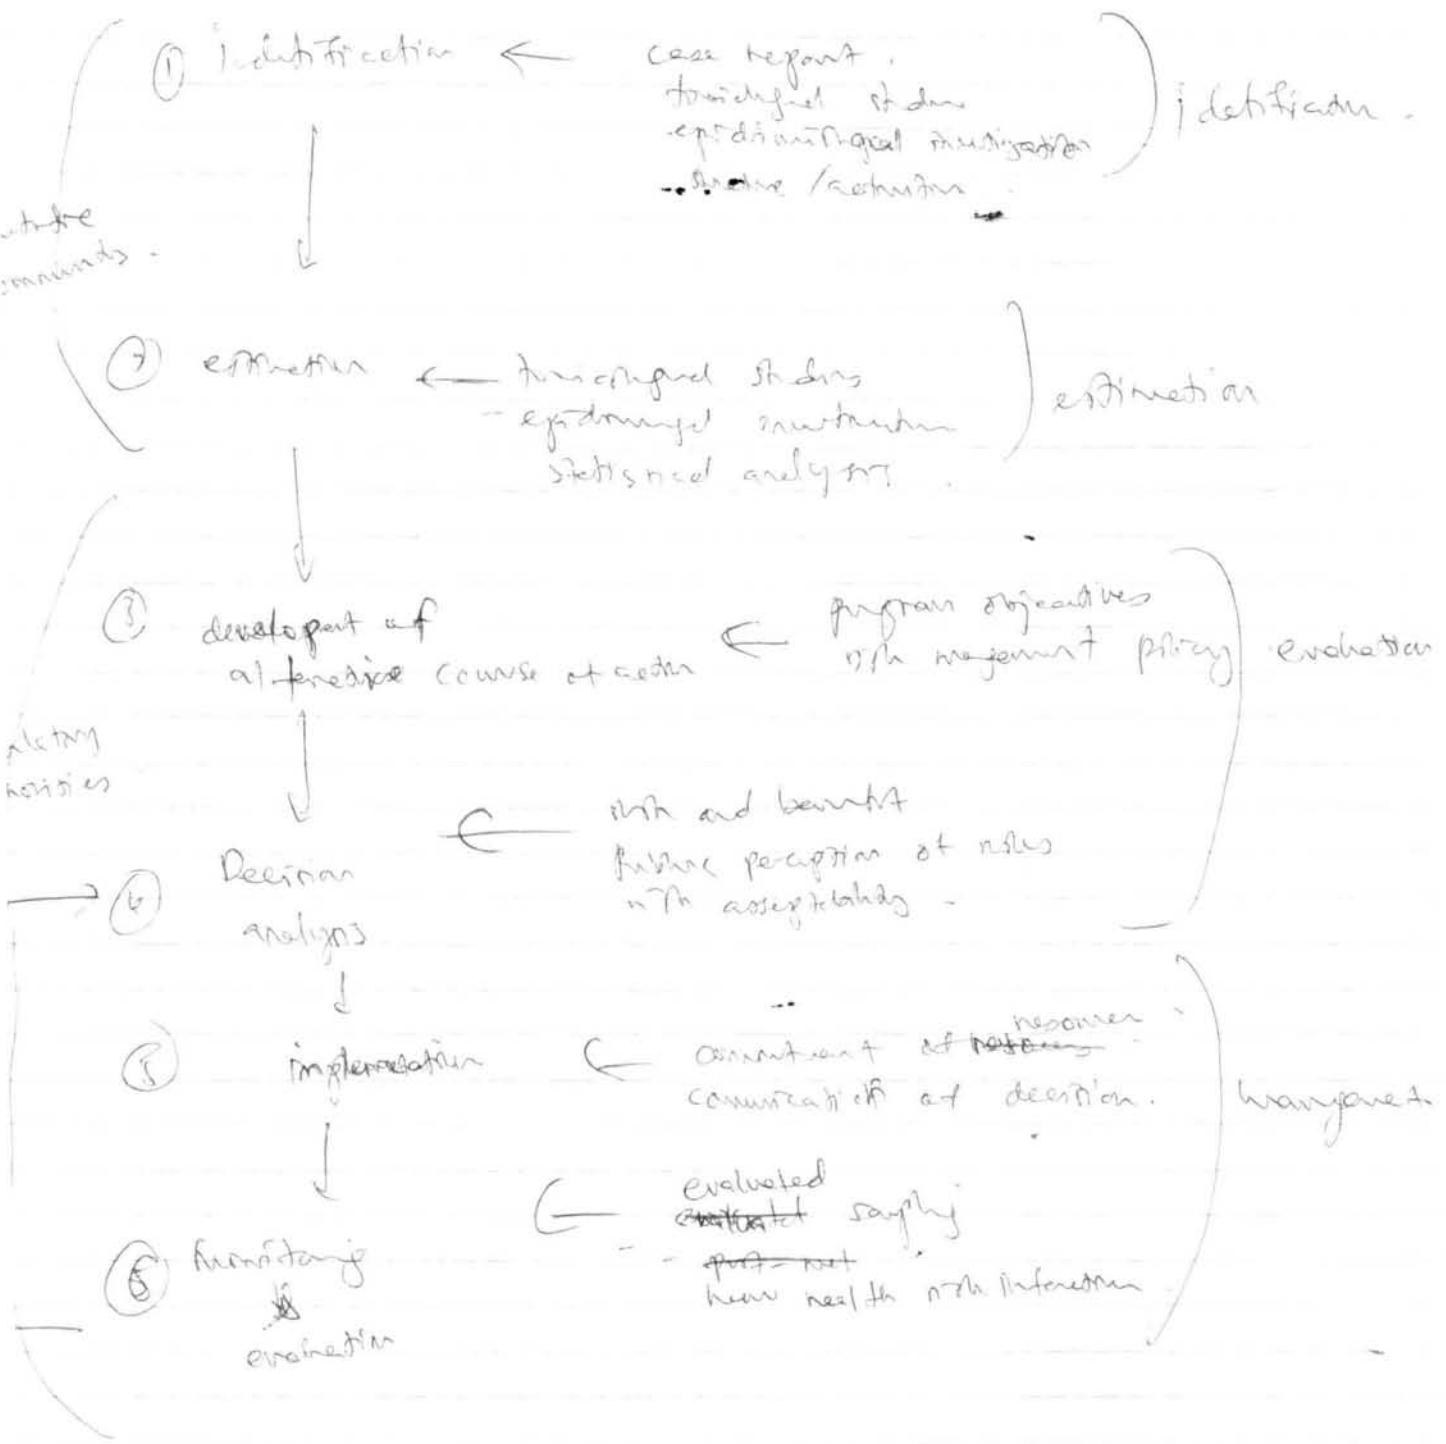 ① identification ← case report.
toxicological studies
epidimiological investigation
structure / activities
identification.
② estimation ← toxicological studies
- epidomiogel
statistical analysis
estimation
③ development of
alternative course of action ← program objectives
risk management policy
evaluation
④ Decision
analysis ← risk and benefit
public perception of risks
risk acceptability
⑤ implementation ← commitment of resources
comunication of decision.
management
⑥ monitoring
evaluation ← evaluated sampling
new health risk information